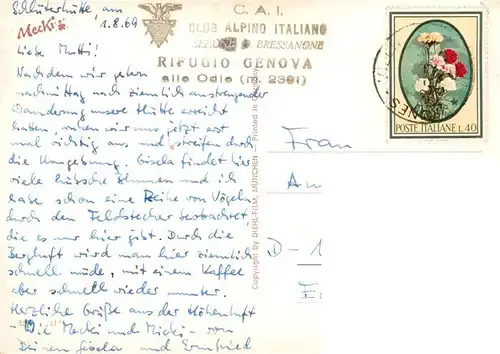 Schlüterhütte, am
1.8.69
Mecki:
C. A. I.
CLUB ALPINO ITALIANO
SEZIONE DI BRESSANONE
RIFUGIO GENOVA
alle Odle (m. 2301)
Liebe Mutti!
Nachdem wir gestern
nachmittag nach ziemlich anstrengender
Wanderung unsere Hütte erreicht
hatten, ruhen wir uns jetzt erst
mal richtig aus und streifen durch
die Umgebung. Gisela findet hier
viele hübsche Blumen und ich
habe schon eine Reihe von Vögeln
durch den Feldstecher beobachtet,
die es nur hier gibt. Durch die
Bergluft wird man hier ziemlich
schnell müde, mit einem Kaffee
aber schnell wieder munter.
Herzliche Grüße aus der Höhenluft
- Die Mecki und Micki - von
Deinen Gisela und Ernfried
Copyright by DIEHL-FILM, MÜNCHEN — Printed in Germany
POSTE ITALIANE L.40
Frau
An
D - 1